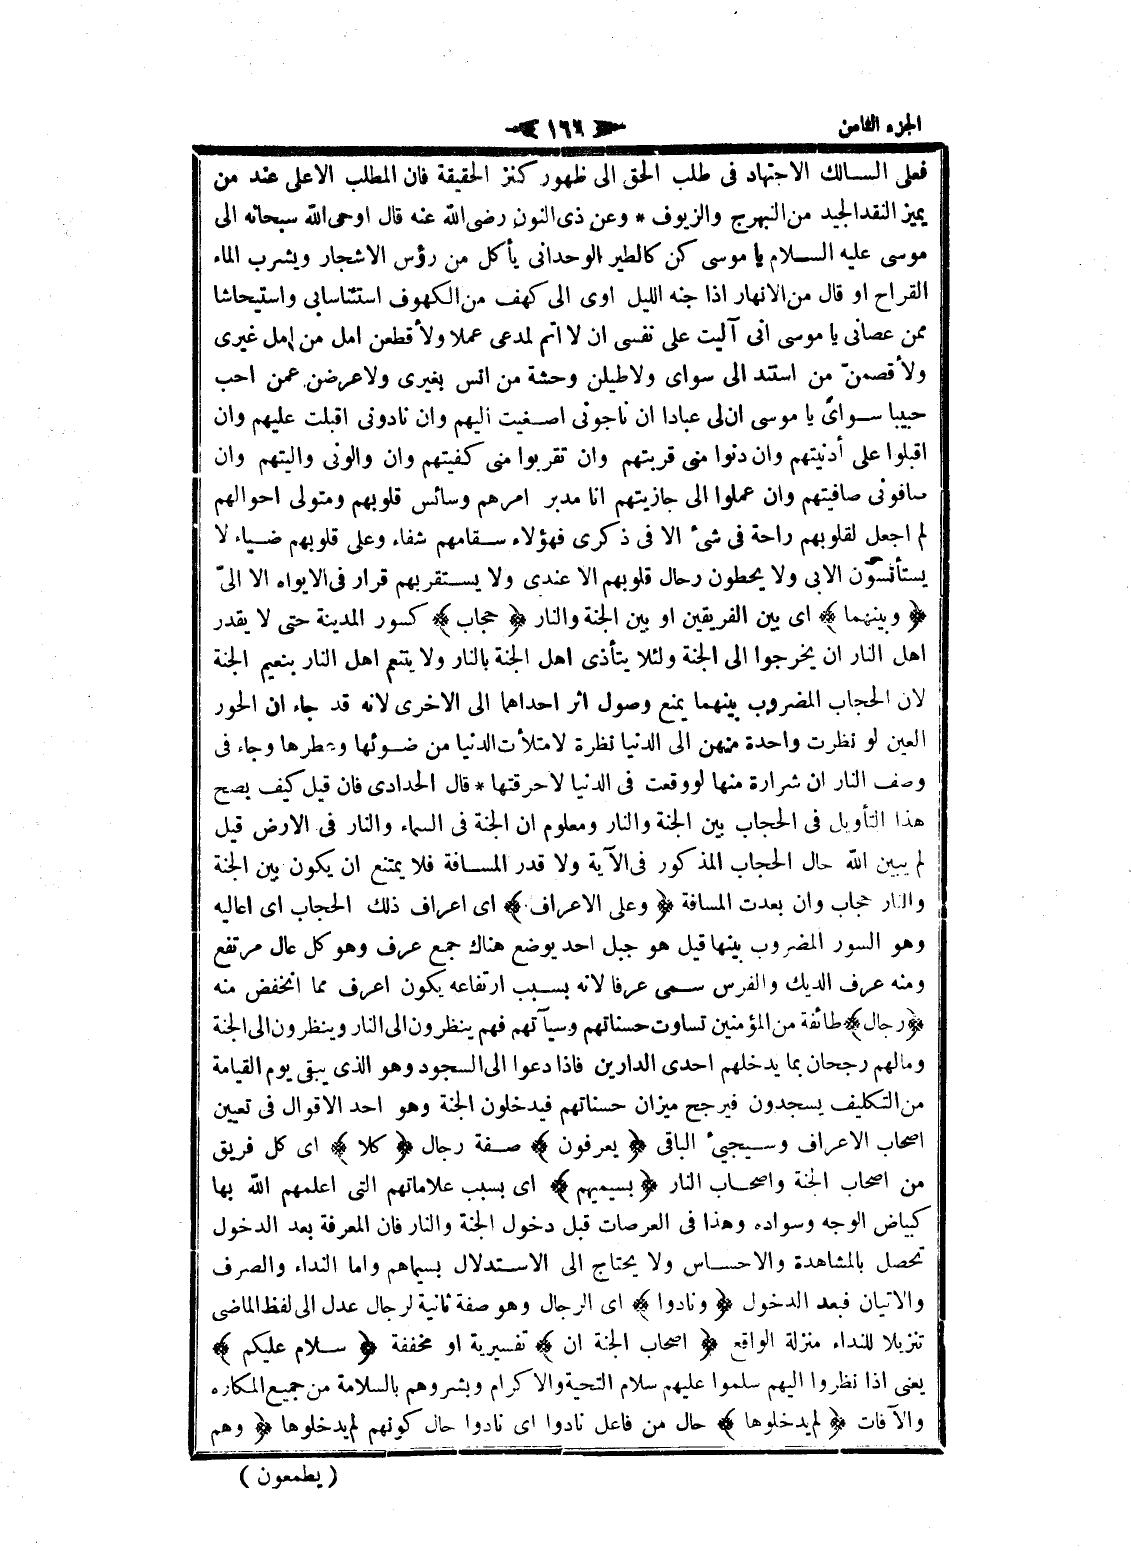 الجزء الثامن
١٦٦
فعلى السالك الاجتهاد فى طلب الحق الى ظهور كنز الحقيقة فان المطلب الاعلى عند من
يميز النقد الجيد من النبهرج والزيوف * وعن ذى النون رضى الله عنه قال اوحى الله سبحانه الى
موسى عليه السلام يا موسى كن كالطير الوحدانى يأكل من رؤس الاشجار ويشرب الماء
القراح او قال من الانهار اذا جنه الليل اوى الى كهف من الكهوف استئناسابى واستيحاشا
ممن عصانى يا موسى انى آليت على نفسى ان لا اتم لمدعى عملا ولأقطعن امل من امل غيرى
ولأقصمنّ من استند الى سواى ولاطيلن وحشة من انس بغيرى ولاعرضن عمن احب
حبيبا سواى يا موسى ان لى عبادا ان ناجونى اصغيت اليهم وان نادونى اقبلت عليهم وان
اقبلوا على أدنيتهم وان دنوا منى قربتهم وان تقربوا منى كفيتهم وان والونى واليتهم وان
صافونى صافيتهم وان عملوا الى جازيتهم انا مدبر امرهم وسائس قلوبهم ومتولى احوالهم
لم اجعل لقلوبهم راحة فى شئ الا فى ذكرى فهؤلاء سقامهم شفاء وعلى قلوبهم ضياء لا
يستأنسون الابى ولا يحطون رحال قلوبهم الا عندى ولا يستقربهم قرار فى الايواه الا الىّ
﴿ وبينهما ﴾ اى بين الفريقين او بين الجنة والنار ﴿ حجاب ﴾ كسور المدينة حتى لا يقدر
اهل النار ان يخرجوا الى الجنة ولئلا يتأذى اهل الجنة بالنار ولا يتنعم اهل النار بنعيم الجنة
لان الحجاب المضروب بينهما يمنع وصول اثر احداهما الى الاخرى لانه قد جاء ان الحور
العين لو نظرت واحدة منهن الى الدنيا نظرة لامتلأت الدنيا من ضوئها وعطرها وجاء فى
وصف النار ان شرارة منها لووقعت فى الدنيا لاحرقتها * قال الحدادى فان قيل كيف يصح
هذا التأويل فى الحجاب بين الجنة والنار ومعلوم ان الجنة فى السماء والنار فى الارض قيل
لم يبين الله حال الحجاب المذكور فى الآية ولا قدر المسافة فلا يمتنع ان يكون بين الجنة
والنار حجاب وان بعدت المسافة ﴿ وعلى الاعراف ﴾ اى اعراف ذلك الحجاب اى اعاليه
وهو السور المضروب بينها قيل هو جبل احد يوضع هناك جمع عرف وهو كل عال مرتفع
ومنه عرف الديك والفرس سمى عرفا لانه بسبب ارتفاعه يكون اعرف مما انخفض منه
﴿ رجال ﴾ طائفة من المؤمنين تساوت حسناتهم وسيآتهم فهم ينظرون الى النار وينظرون الى الجنة
ومالهم رجحان بما يدخلهم احدى الدارين فاذا دعوا الى السجود وهو الذى يبقى يوم القيامة
من التكليف يسجدون فيرجح ميزان حسناتهم فيدخلون الجنة وهو احد الاقوال فى تعيين
اصحاب الاعراف وسيجئ الباقى ﴿ يعرفون ﴾ صفة رجال ﴿ كلا ﴾ اى كل فريق
من اصحاب الجنة واصحاب النار ﴿ بسيميهم ﴾ اى بسبب علاماتهم التى اعلمهم الله بها
كبياض الوجه وسواده وهذا فى العرصات قبل دخول الجنة والنار فان المعرفة بعد الدخول
تحصل بالمشاهدة والاحساس ولا يحتاج الى الاستدلال بسيماهم واما النداء والصرف
والاتيان فبعد الدخول ﴿ ونادوا ﴾ اى الرجال وهو صفة ثانية لرجال عدل الى لفظ الماضى
تنزيلا للنداء منزلة الواقع ﴿ اصحاب الجنة ان ﴾ تفسيرية او مخففة ﴿ سلام عليكم ﴾
يعنى اذا نظروا اليهم سلموا عليهم سلام التحية والاكرام وبشروهم بالسلامة من جميع المكاره
والآفات ﴿ لم يدخلوها ﴾ حال من فاعل نادوا اى نادوا حال كونهم لم يدخلوها ﴿ وهم
( يطمعون )